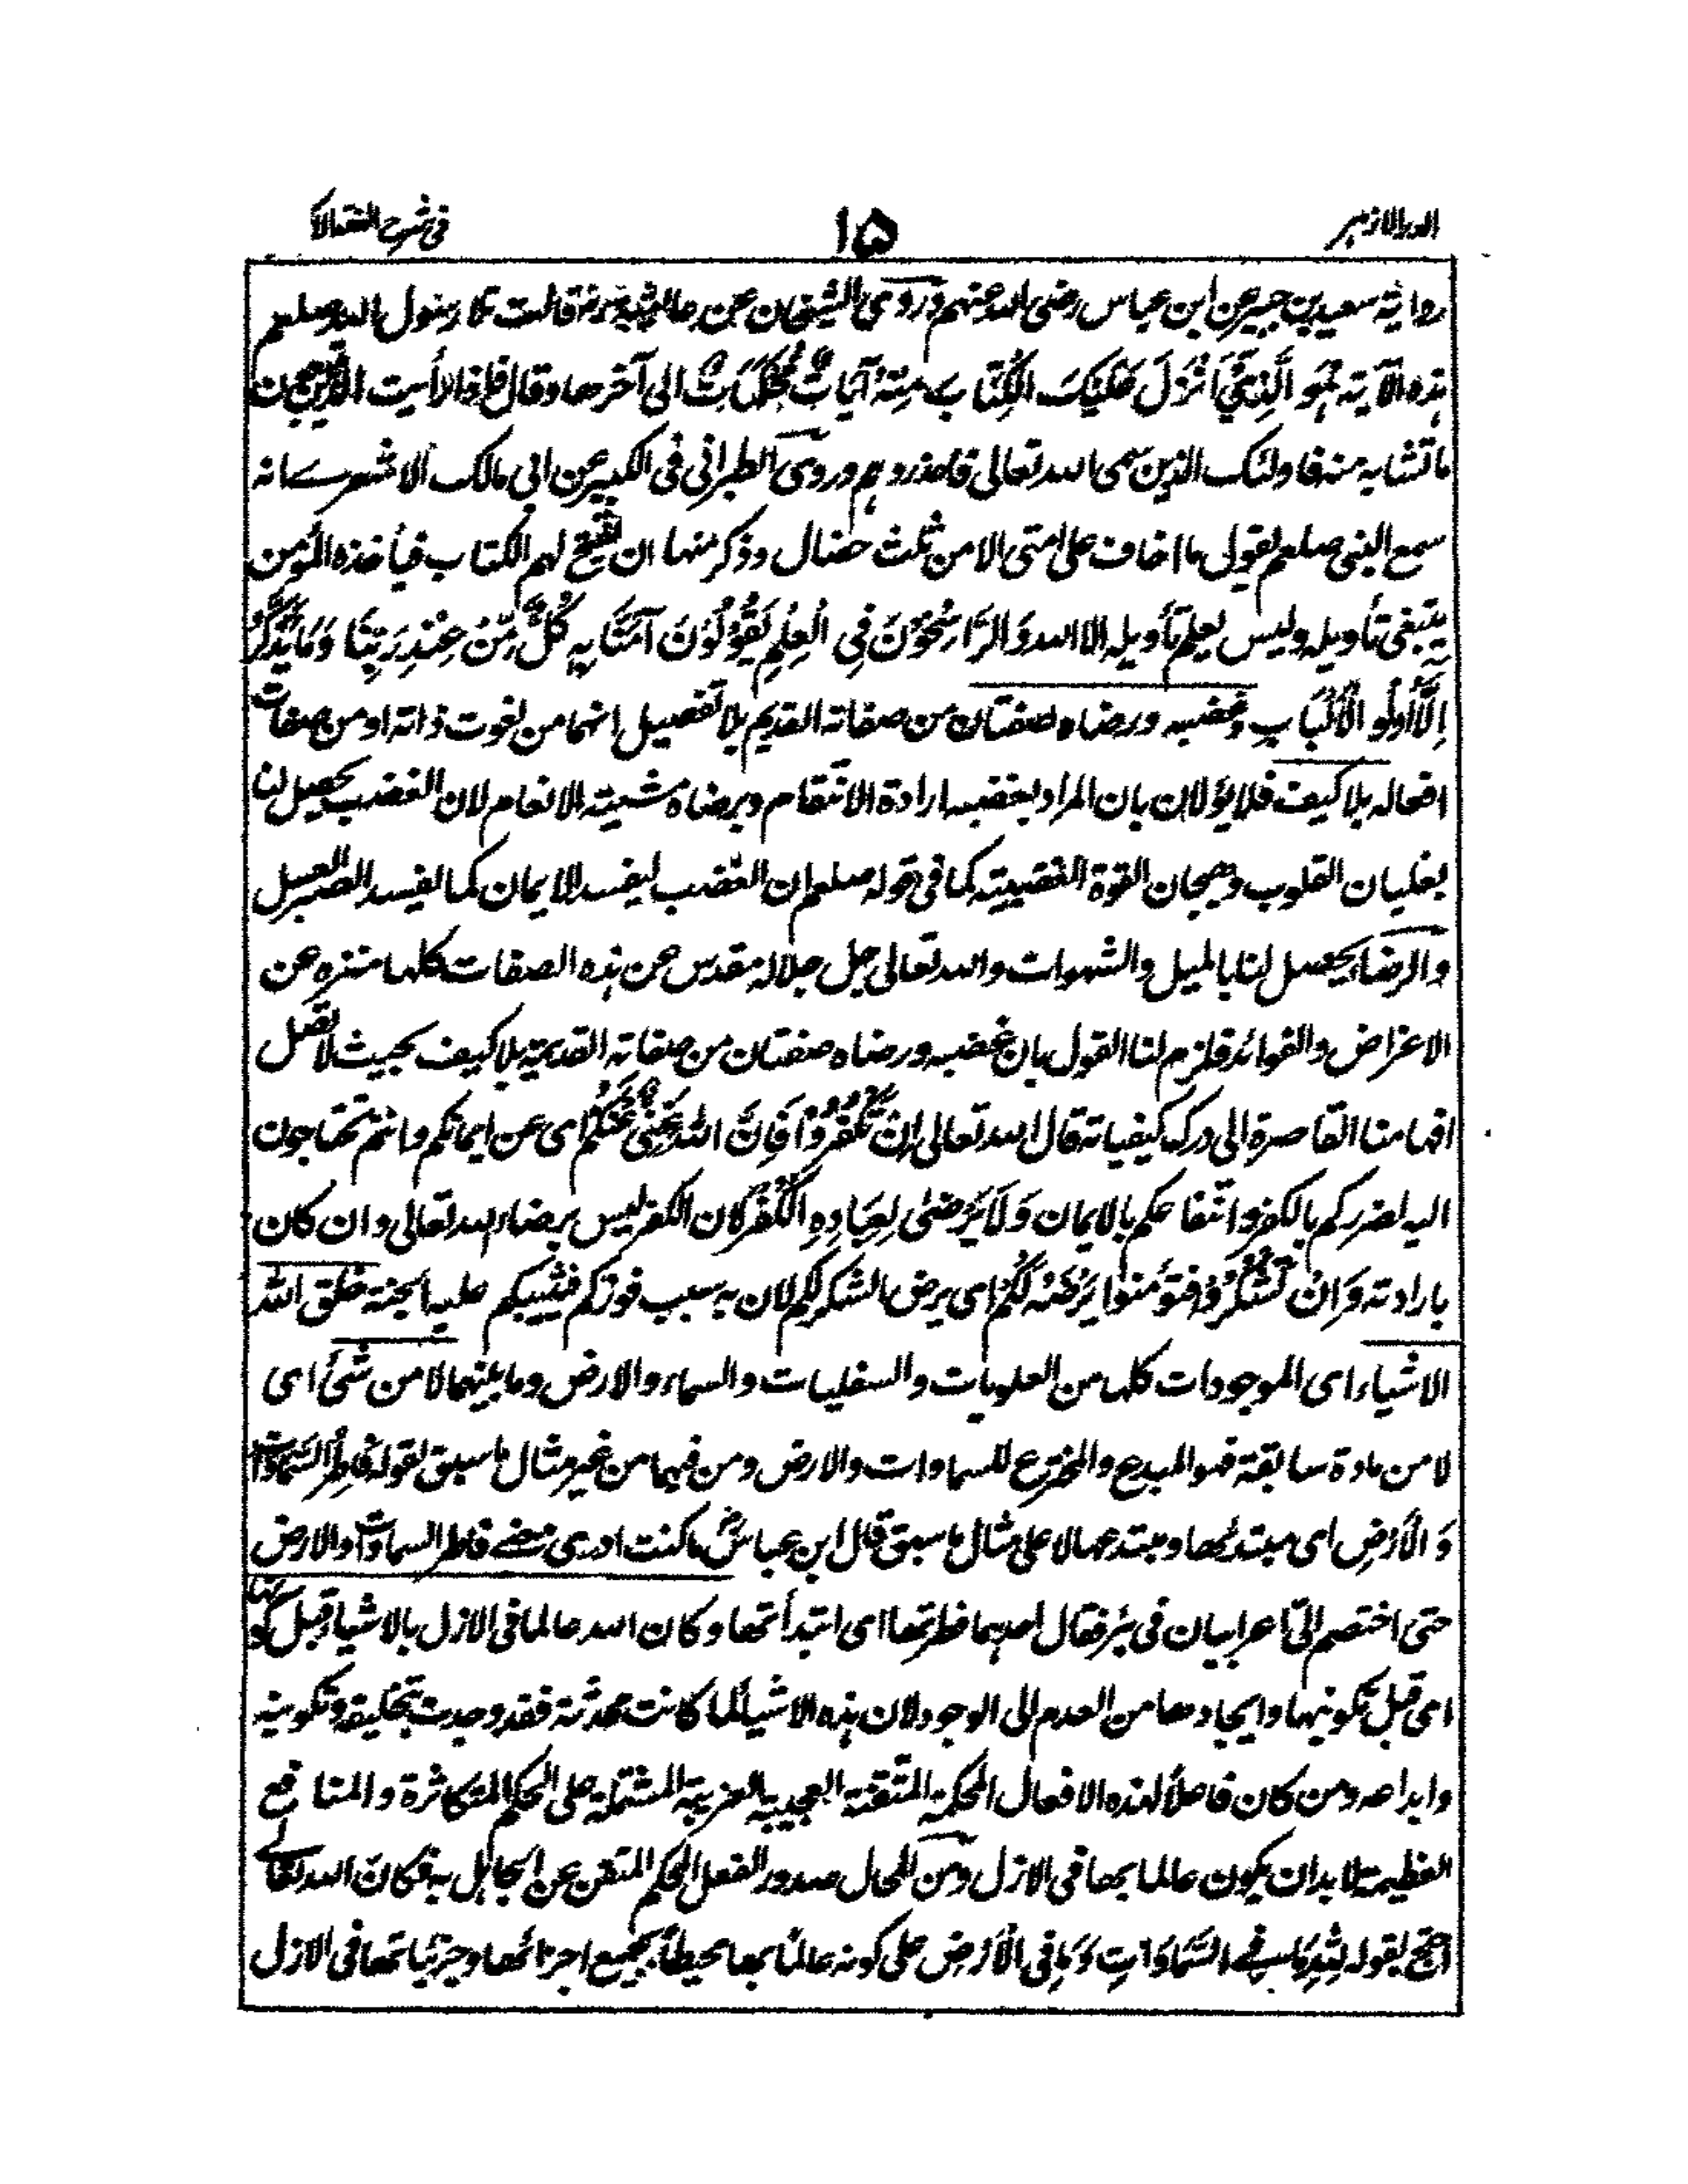 الدر الازہر ١٥ فی شرح الفقہ الاکبر
روایۃ سعید بن جبیر عن ابن عباس رضی اللہ عنہم وروی الشیخان عن عائشۃ رضہ قالت تلا رسول اللہ صلعم
ہذہ الآیۃ ہُوَ الَّذِیْٓ اَنْزَلَ عَلَیْکَ الْکِتَابَ مِنْہُ آیَاتٌ مُّحْکَمَاتٌ الی آخرھا وقال فاذا رأیت الذین یتبعون
ما تشابہ منہ فاولئک الذین سمی اللہ تعالی فاحذروہم وروی الطبرانی فی الکبیر عن ابی مالک الاشعرے انہ
سمع النبی صلعم یقول ما اخاف علی امتی الا من ثلث خصال وذکر منہا ان یفتح لہم الکتاب فیأخذہ المؤمن
یبتغی تأویلہ ولیس یعلم تأویلہ الا اللہ وَالرَّاسِخُوْنَ فِی الْعِلْمِ یَقُوْلُوْنَ آمَنَّا بِہٖ کُلٌّ مِّنْ عِنْدِ رَبِّنَا وَمَا یَذَّکَّرُ
اِلَّا اُولُو الْاَلْبَابِ وغضبہ ورضاہ صفتان من صفاتہ القدیم بلا تفصیل انہما من نعوت ذاتہ او من صفات
افعالہ بلا کیف فلا یؤلان بان المراد بغضبہ ارادۃ الانتقام وبرضاہ مشیتہ الانعام لان الغضب یحصل لنا
بغلیان القلوب وھیجان القوۃ الغضبیۃ کما فی قولہ صلعم ان الغضب لیفسد الایمان کما یفسد الصبر العسل
والرضا یحصل لنا بالمیل والشہوات واللہ تعالی جل جلالہ مقدس عن ہذہ الصفات کلہا منزہ عن
الاعراض والفوائد فلزم لنا القول بان غضبہ ورضاہ صفتان من صفاتہ القدیمۃ بلا کیف بحیث لا تصل
افہامنا القاصرۃ الی درک کیفیاتہ قال اللہ تعالی اِنْ تَکْفُرُوْا فَاِنَّ اللہَ غَنِیٌّ عَنْکُمْ ای عن ایمانکم وانتم تحتاجون
الیہ لضررکم بالکفر وانتفاعکم بالایمان وَلَا یَرْضٰی لِعِبَادِہِ الْکُفْرَ لان الکفر لیس برضاء اللہ تعالی وان کان
بارادتہ وَاِنْ تَشْکُرُوْا فتؤمنوا یَرْضَہُ لَکُمْ ای یرض الشکر لکم لان بہ سبب فوزکم فیثیبکم علیہ الجنۃ خلق اللہ
الاشیاء ای الموجودات کلہا من العلویات والسفلیات والسماء والارض وما بینہما لا من شئ ای
لا من مادۃ سابقۃ فہو المبدع والمخترع للسماوات والارض ومن فیہما من غیر مثال ما سبق لقولہ فَاطِرُ السَّمٰوَاتِ
وَالْاَرْضِ ای مبتدئھا ومبتدعھا لا علی مثال ما سبق قال ابن عباسؓ ما کنت ادری معنے فاطر السماوات والارض
حتی اختصم الیّ اعرابیان فی بئر فقال احدہما فطرتھا ای ابتدأتھا وکان اللہ عالما فی الازل بالاشیاء قبل کونہا
ای قبل تکوینہا وایجادھا من العدم الی الوجود لان ہذہ الاشیاء لما کانت محدثۃ فقد وجدت بتخلیقہ وتکوینہ
وابداعہ ومن کان فاعلاً لہذہ الافعال المحکمۃ المتقنۃ العجیبۃ الغریبۃ المشتملۃ علی الحکم المتکاثرۃ والمنافع
العظیمۃ لا بد ان یکون عالما بھا فی الازل ومن المحال صدور الفعل المحکم المتقن عن الجاہل بہ فکان اللہ تعالے
احتج بقولہ لِلّٰہِ مَا فِے السَّمَاوَاتِ وَمَا فِی الْاَرْضِ علی کونہ عالمًا بھا محیطاً بجمیع اجزائھا وجزئیاتھا فی الازل